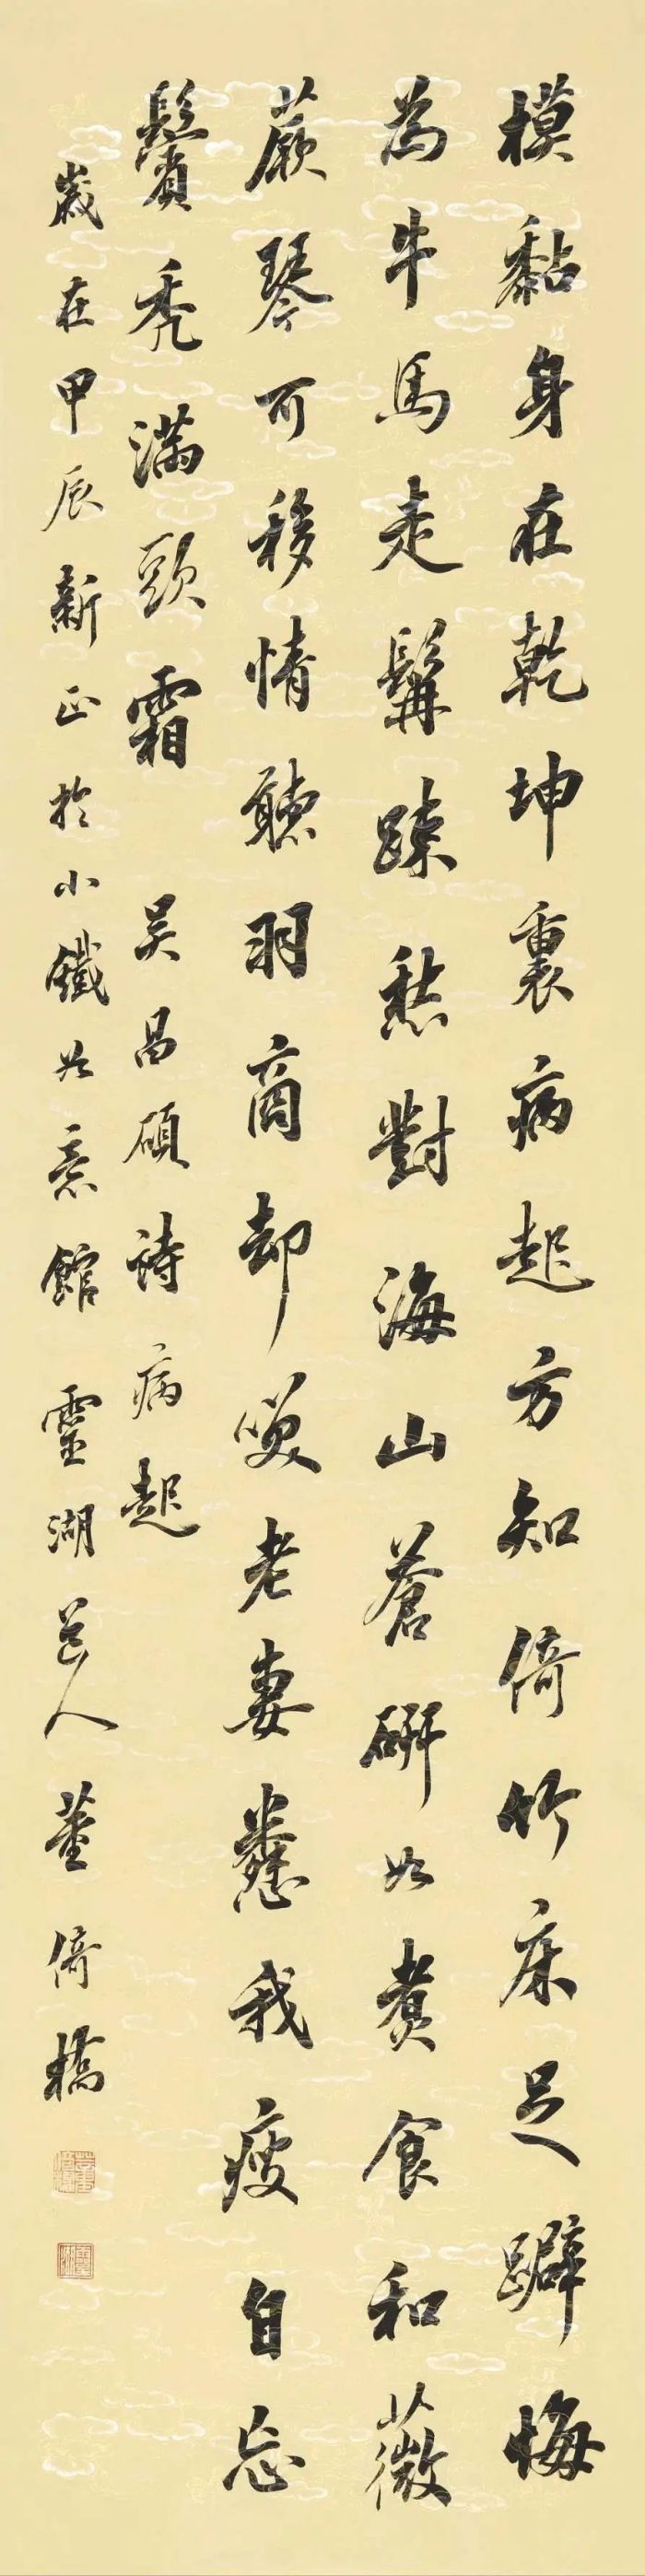 模黏身在乾坤裏病起方知倚竹床足躃悔
為牛馬走髯踈愁對海山蒼研如煮食和薇
蕨琴可移情聽羽商却咲老妻憐我瘦自忘
鬢禿滿頭霜 吳昌碩詩病起
歲在甲辰新正於小鐵如意館 靈湖道人董倚橋